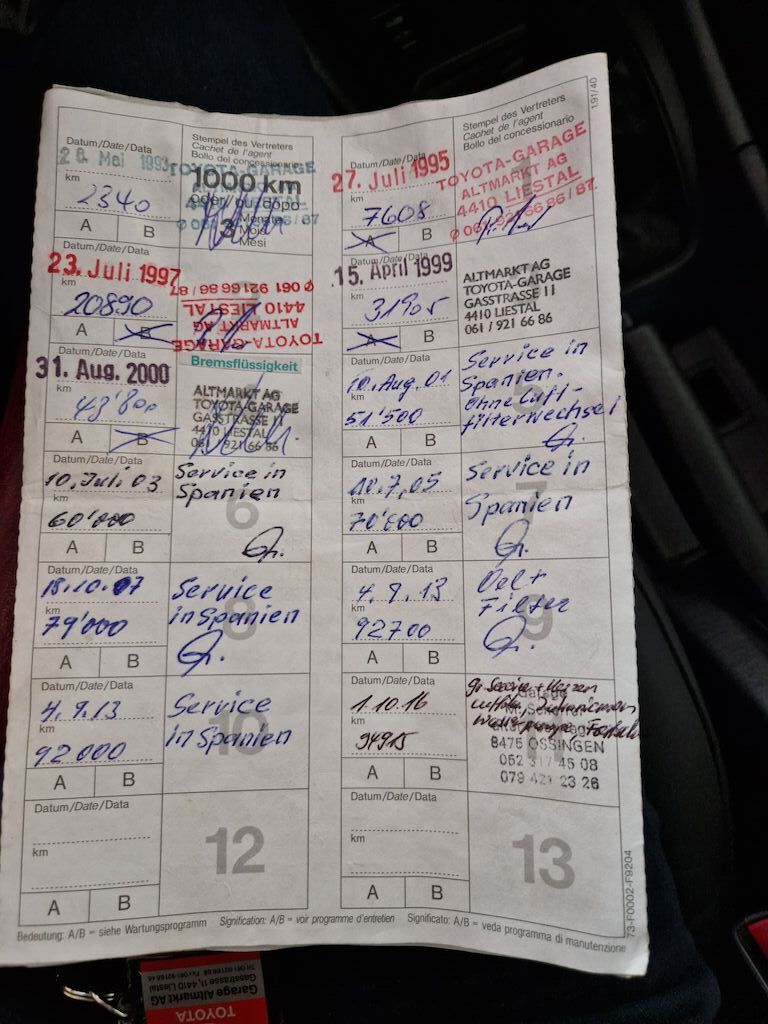 1.91/40
Datum/Date/Data
28. Mai 1993
km
2340
A B
Stempel des Vertreters
Cachet de l'agent
Bollo del concessionario
TOYOTA-GARAGE
1000 km
oder/ou/dopo
3 Monate
Mois
Mesi
Datum/Date/Data
27. Juli 1995
km
7608
A B
Stempel des Vertreters
Cachet de l'agent
Bollo del concessionario
TOYOTA-GARAGE
ALTMARKT AG
4410 LIESTAL
061 921 66 86 / 87
Datum/Date/Data
23. Juli 1997
km
20890
A B
TOYOTA-GARAGE
ALTMARKT AG
4410 LIESTAL
061 921 66 86 / 87
Datum/Date/Data
15. April 1999
km
31905
A B
ALTMARKT AG
TOYOTA-GARAGE
GASSTRASSE 11
4410 LIESTAL
061 / 921 66 86
Datum/Date/Data
31. Aug. 2000
km
43'800
A B
Bremsflüssigkeit
ALTMARKT AG
TOYOTA-GARAGE
GASSTRASSE 11
4410 LIESTAL
061 / 921 66 86
Datum/Date/Data
10. Aug. 01
km
51'500
A B
Service in
Spanien.
ohne Luft-
filterwechsel
Datum/Date/Data
10. Juli 03
km
60'000
A B
Service in
Spanien
6
Datum/Date/Data
10.7.05
km
70'000
A B
Service in
Spanien
7
Datum/Date/Data
18.10.07
km
79'000
A B
Service
in Spanien
8
Datum/Date/Data
4.9.13
km
92700
A B
Oel +
Filter
9
Datum/Date/Data
4.9.13
km
92000
A B
Service
in Spanien
10
Datum/Date/Data
1.10.16
km
94915
A B
gr. Service + Kerzen
Wasserpumpe,
Garage
8475 OSSINGEN
052 317 45 08
079 421 23 26
Datum/Date/Data
km
A B
12
Datum/Date/Data
km
A B
13
Bedeutung: A/B = siehe Wartungsprogramm Signification: A/B = voir programme d'entretien Significato: A/B = veda programma di manutenzione
73-F0002-F9204
TOYOTA
Garage Altmarkt AG
Gasstrasse 11, 4410 Liestal